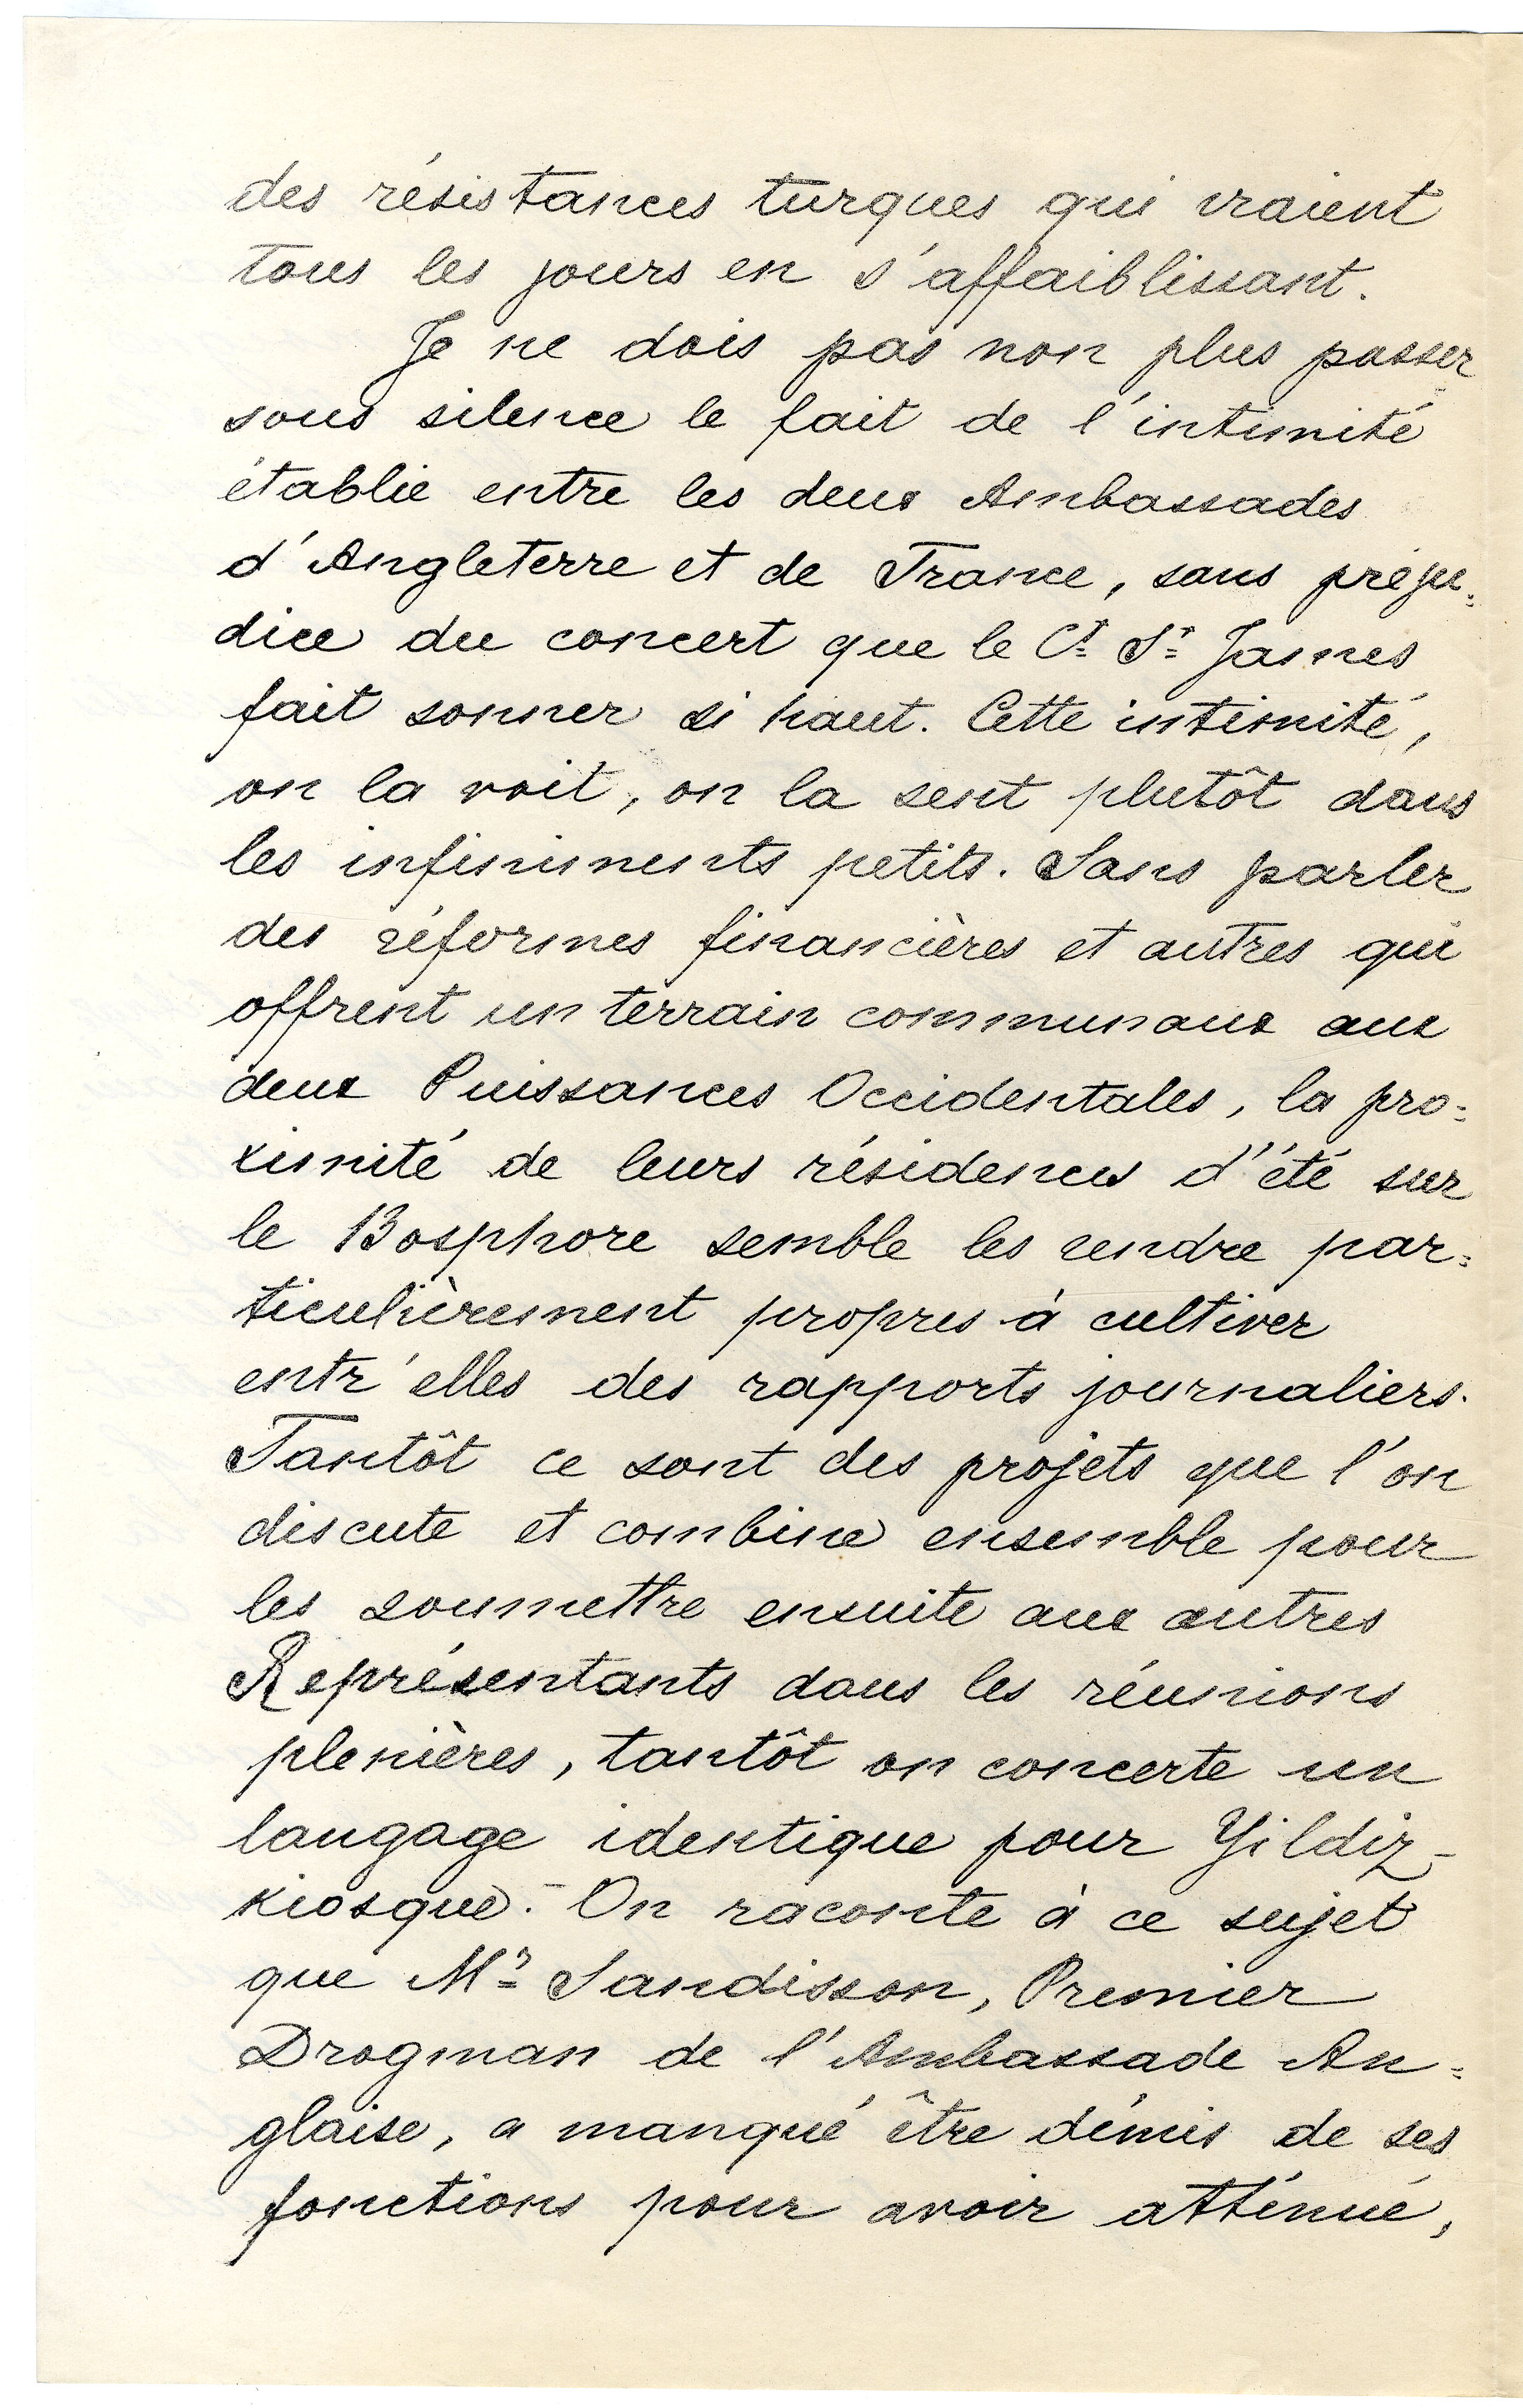 des résistances turques qui iraient
tous les jours en s'affaiblissant.
Je ne dois pas non plus passer
sous silence le fait de l'intimité
établie entre les deux Ambassades
d'Angleterre et de France, sans préju=
dice du concert que le Ct St James
fait sonner si haut. Cette intimité,
on la voit, on la sent plutôt dans
les infiniments petits. Sans parler
des réformes financières et autres qui
offrent un terrain communaux aux
deux Puissances Occidentales, la pro=
ximité de leurs résidences d'été sur
le Bosphore semble les rendre par=
ticulièrement propres à cultiver
entr'elles des rapports journaliers.
Tantôt ce sont des projets que l'on
discute et combine ensemble pour
les soumettre ensuite aux autres
Représentants dans les réunions
plenières, tantôt on concerte un
langage identique pour Yildiz-
kiosque.- On raconte à ce sujet
que Mr Sandisson, Premier
Drogman de l'Ambassade An=
glaise, a manqué être démis de ses
fonctions pour avoir atténué,